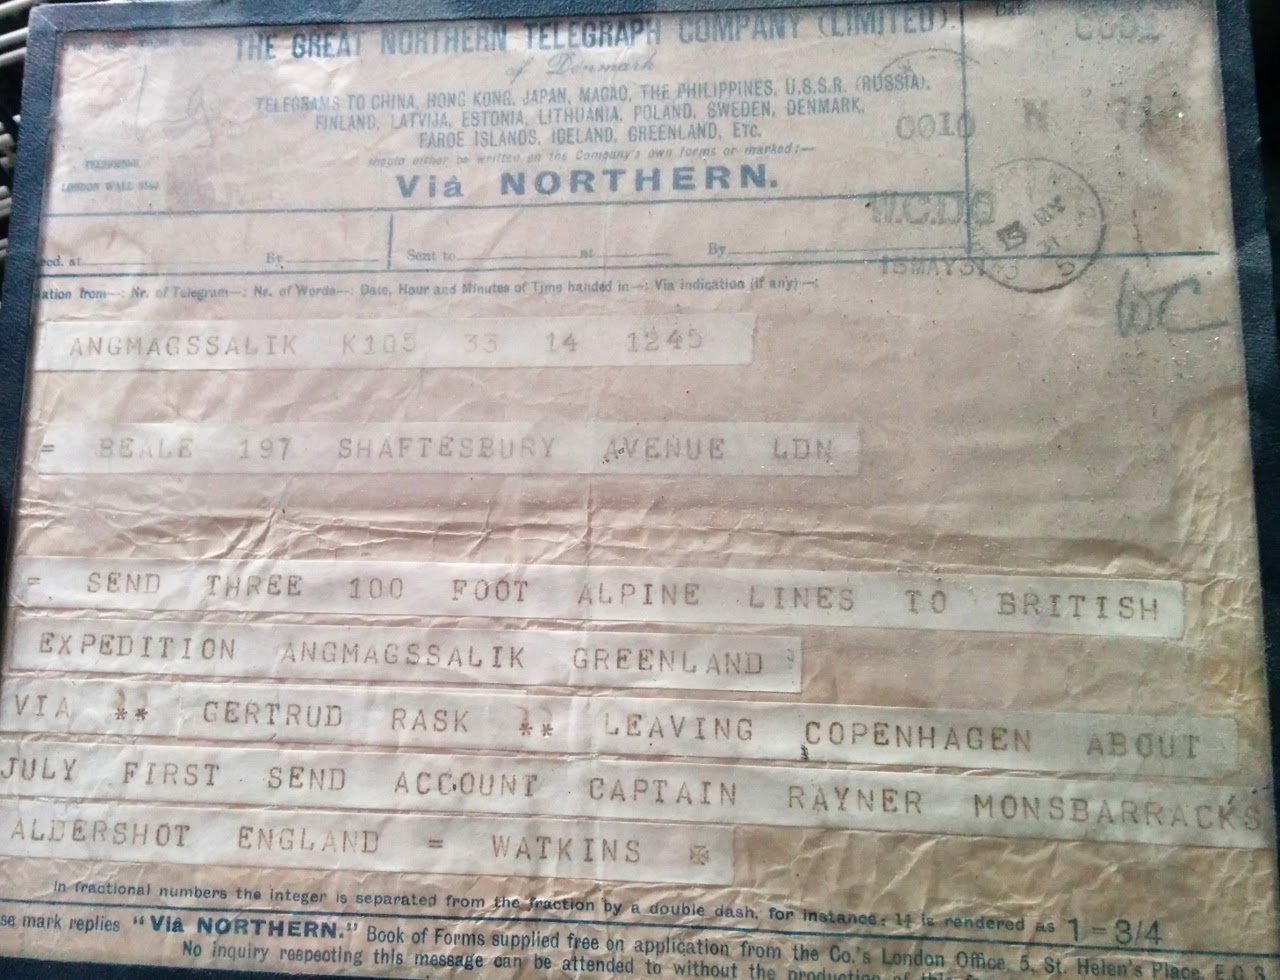 THE GREAT NORTHERN TELEGRAPH COMPANY (LIMITED).
of Denmark
TELEGRAMS TO CHINA, HONG KONG, JAPAN, MACAO, THE PHILIPPINES, U.S.S.R. (RUSSIA),
FINLAND, LATVIJA, ESTONIA, LITHUANIA, POLAND, SWEDEN, DENMARK,
FAROE ISLANDS, ICELAND, GREENLAND, ETC.
should either be written on the Company's own forms or marked:—
Viâ NORTHERN.
TELEPHONE
LONDON WALL
0010 N
15 MAY 31
15 MAY 31
WC
at By Sent to at By
ation from—: Nr. of Telegram—: Nr. of Words—: Date, Hour and Minutes of Time handed in—: Via indication (if any)—:
ANGMAGSSALIK K105 33 14 1245
= BEALE 197 SHAFTESBURY AVENUE LDN
= SEND THREE 100 FOOT ALPINE LINES TO BRITISH
EXPEDITION ANGMAGSSALIK GREENLAND
VIA ** GERTRUD RASK ** LEAVING COPENHAGEN ABOUT
JULY FIRST SEND ACCOUNT CAPTAIN RAYNER MONSBARRACKS
ALDERSHOT ENGLAND = WATKINS
In fractional numbers the integer is separated from the fraction by a double dash, for instance: 1¾ is rendered as 1=3/4
se mark replies "Viâ NORTHERN." Book of Forms supplied free on application from the Co.'s London Office, 5, St. Helen's Place,
No inquiry respecting this message can be attended to without the production of this